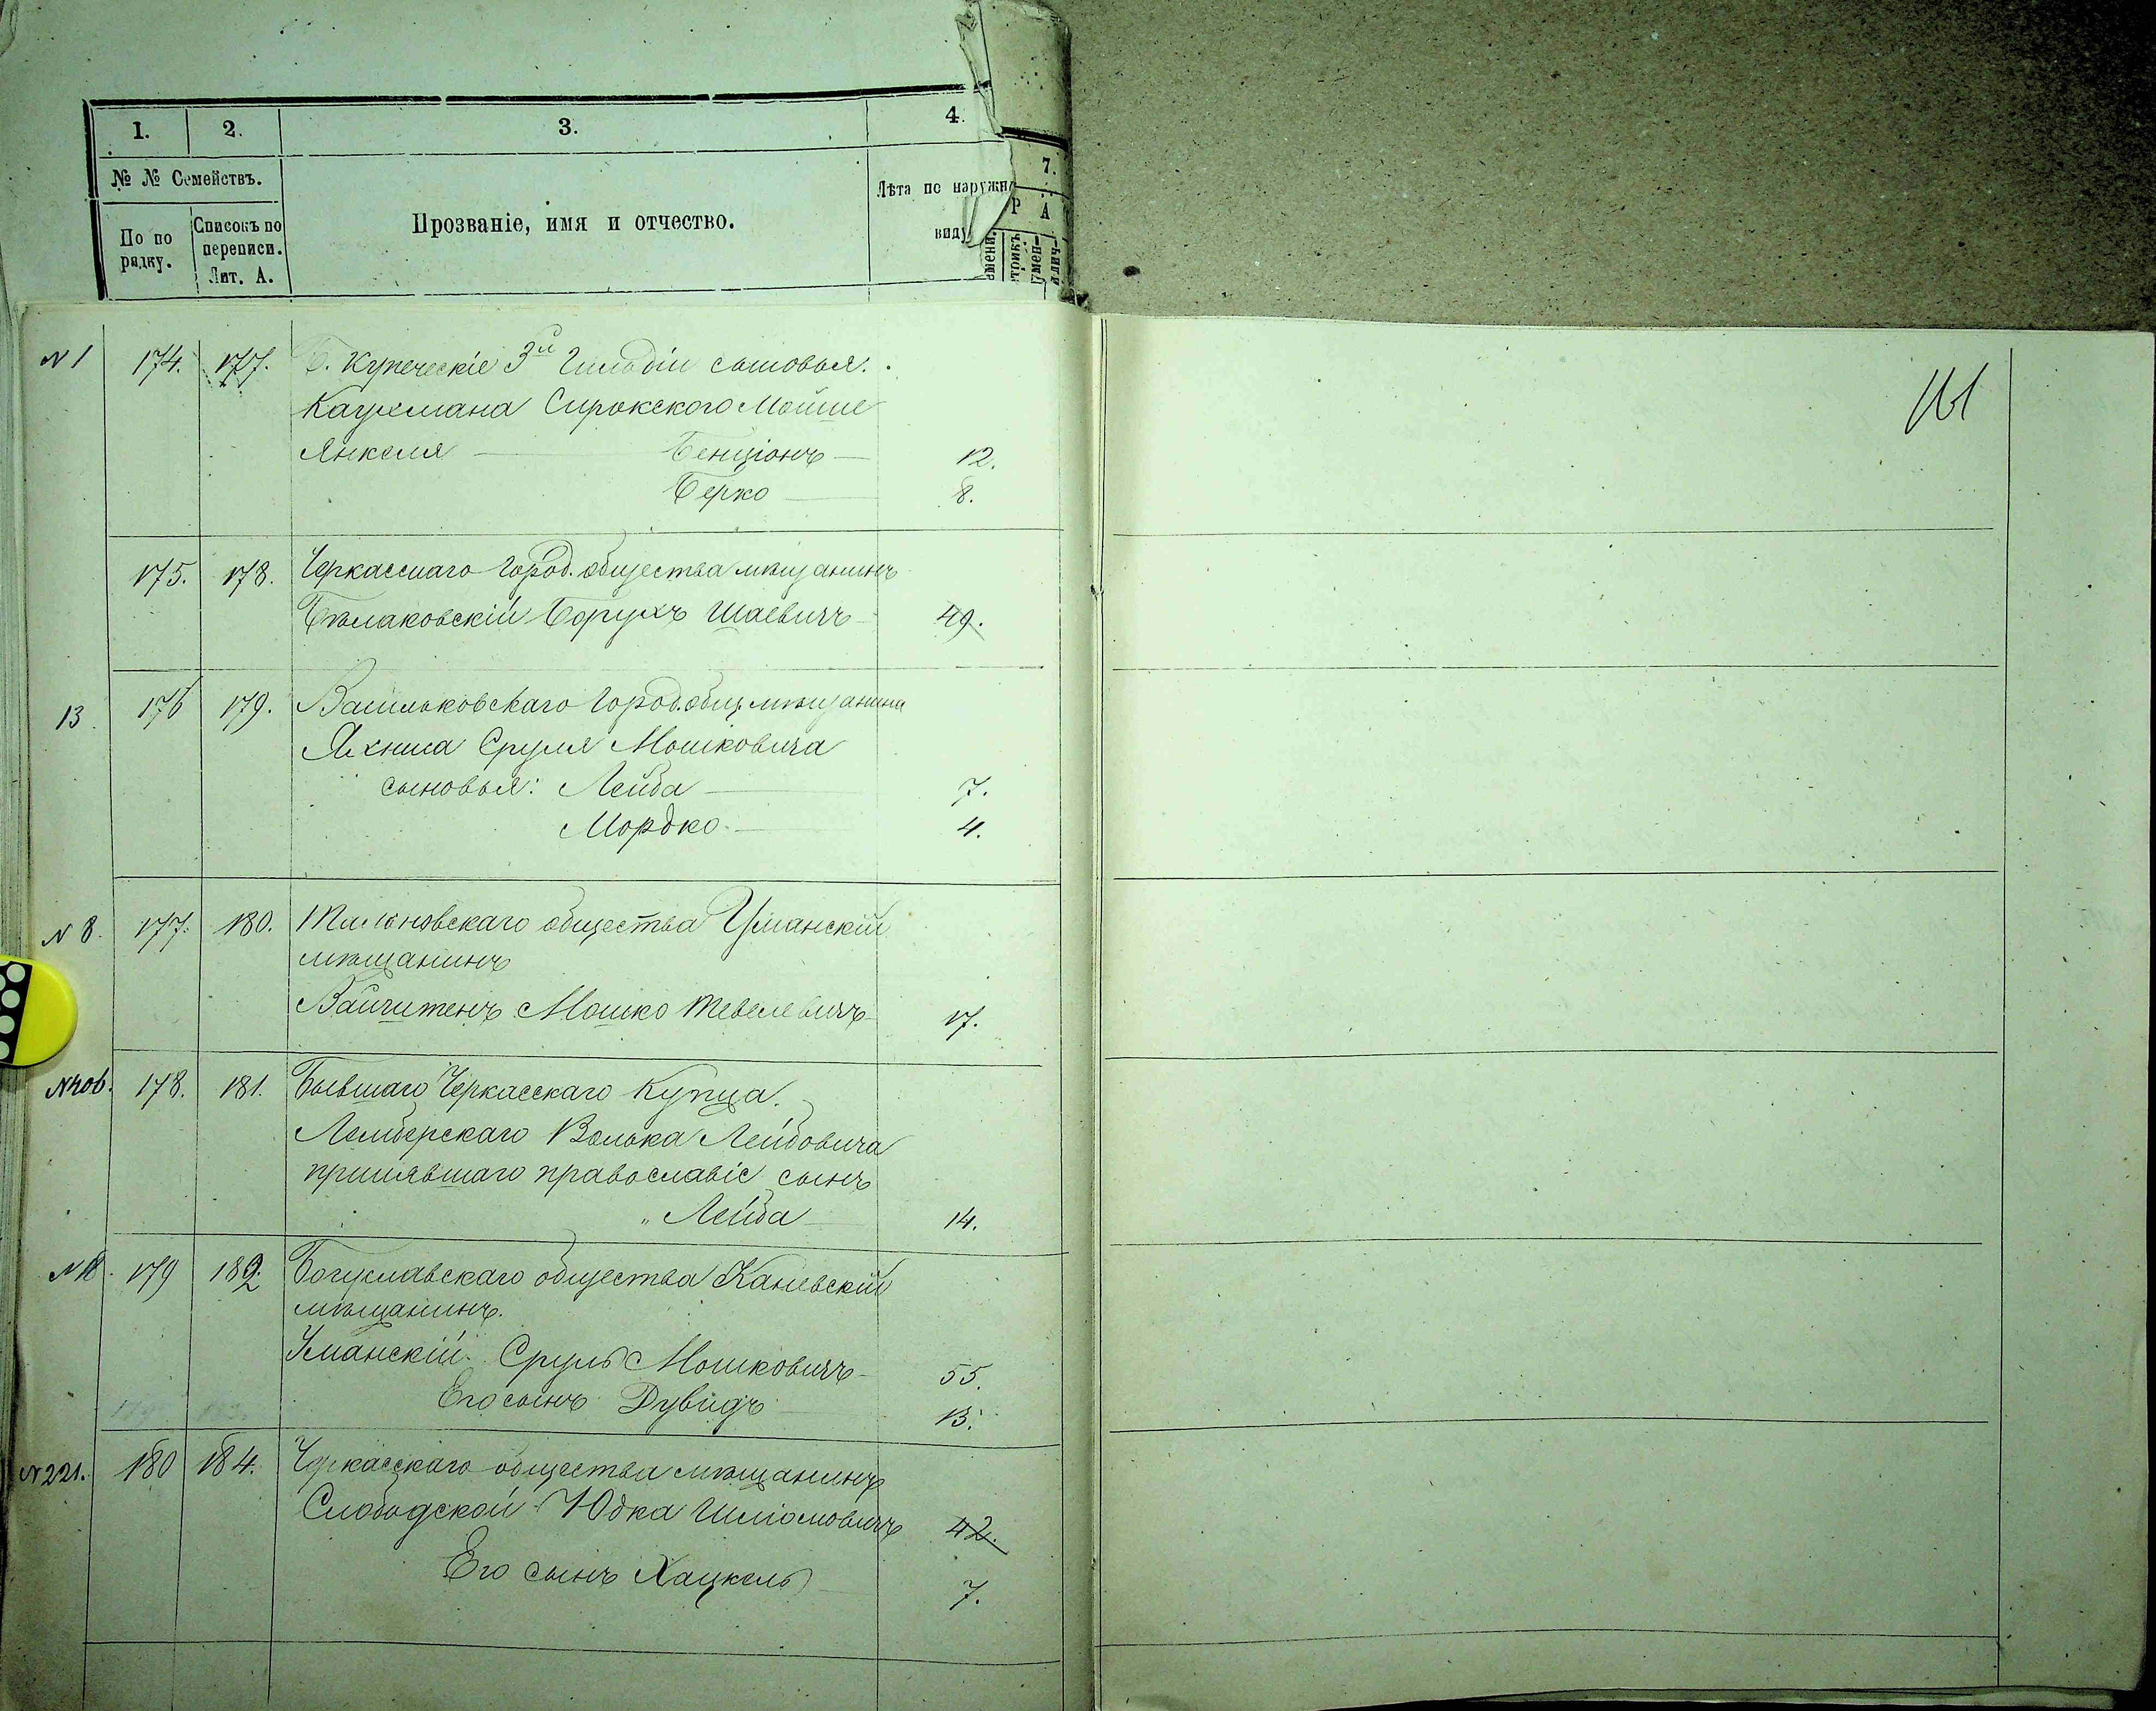 1. 2. 3. 4. 7.
№ № Семействъ.
По по рядку.
Списокъ по переписи. Лит. А.
Прозваніе, имя и отчество.
Лѣта по наружн
виду
Р А
N 1 174. 177. Б. Купеческіе 3й Гильдіи сыновья:
Кауфмана Мойше
Янкеля — Бенціонъ — 12.
Берко — 8.
175. 178. Черкасскаго Город. общества мѣщанинъ
Бѣлаковскій Борухъ Шаевичъ 49.
13 176 179. Васильковскаго Город. общ. мѣщанина
Яхниса Сруля Мошковича
сыновья: Лейба — 7.
Мордко — 4.
N 8. 177. 180. Тальновскаго общества Уманскій
мѣщанинъ
Мошко Тевелевичъ 17.
178. 181. Бывшаго Черкасскаго Купца
Лемберскаго Волька Лейбовича
принявшаго православіе сынъ
„ Лейба 14.
179 182. Богуславскаго общества Каневскій
мѣщанинъ.
Уманскій Сруль Мошковичъ 55.
Его сынъ Дувидъ 13.
N 221. 180 184. Черкасскаго общества мѣщанинъ
Слободской Юдка Шліомовичъ 42.
Его сынъ Хацкель 7.